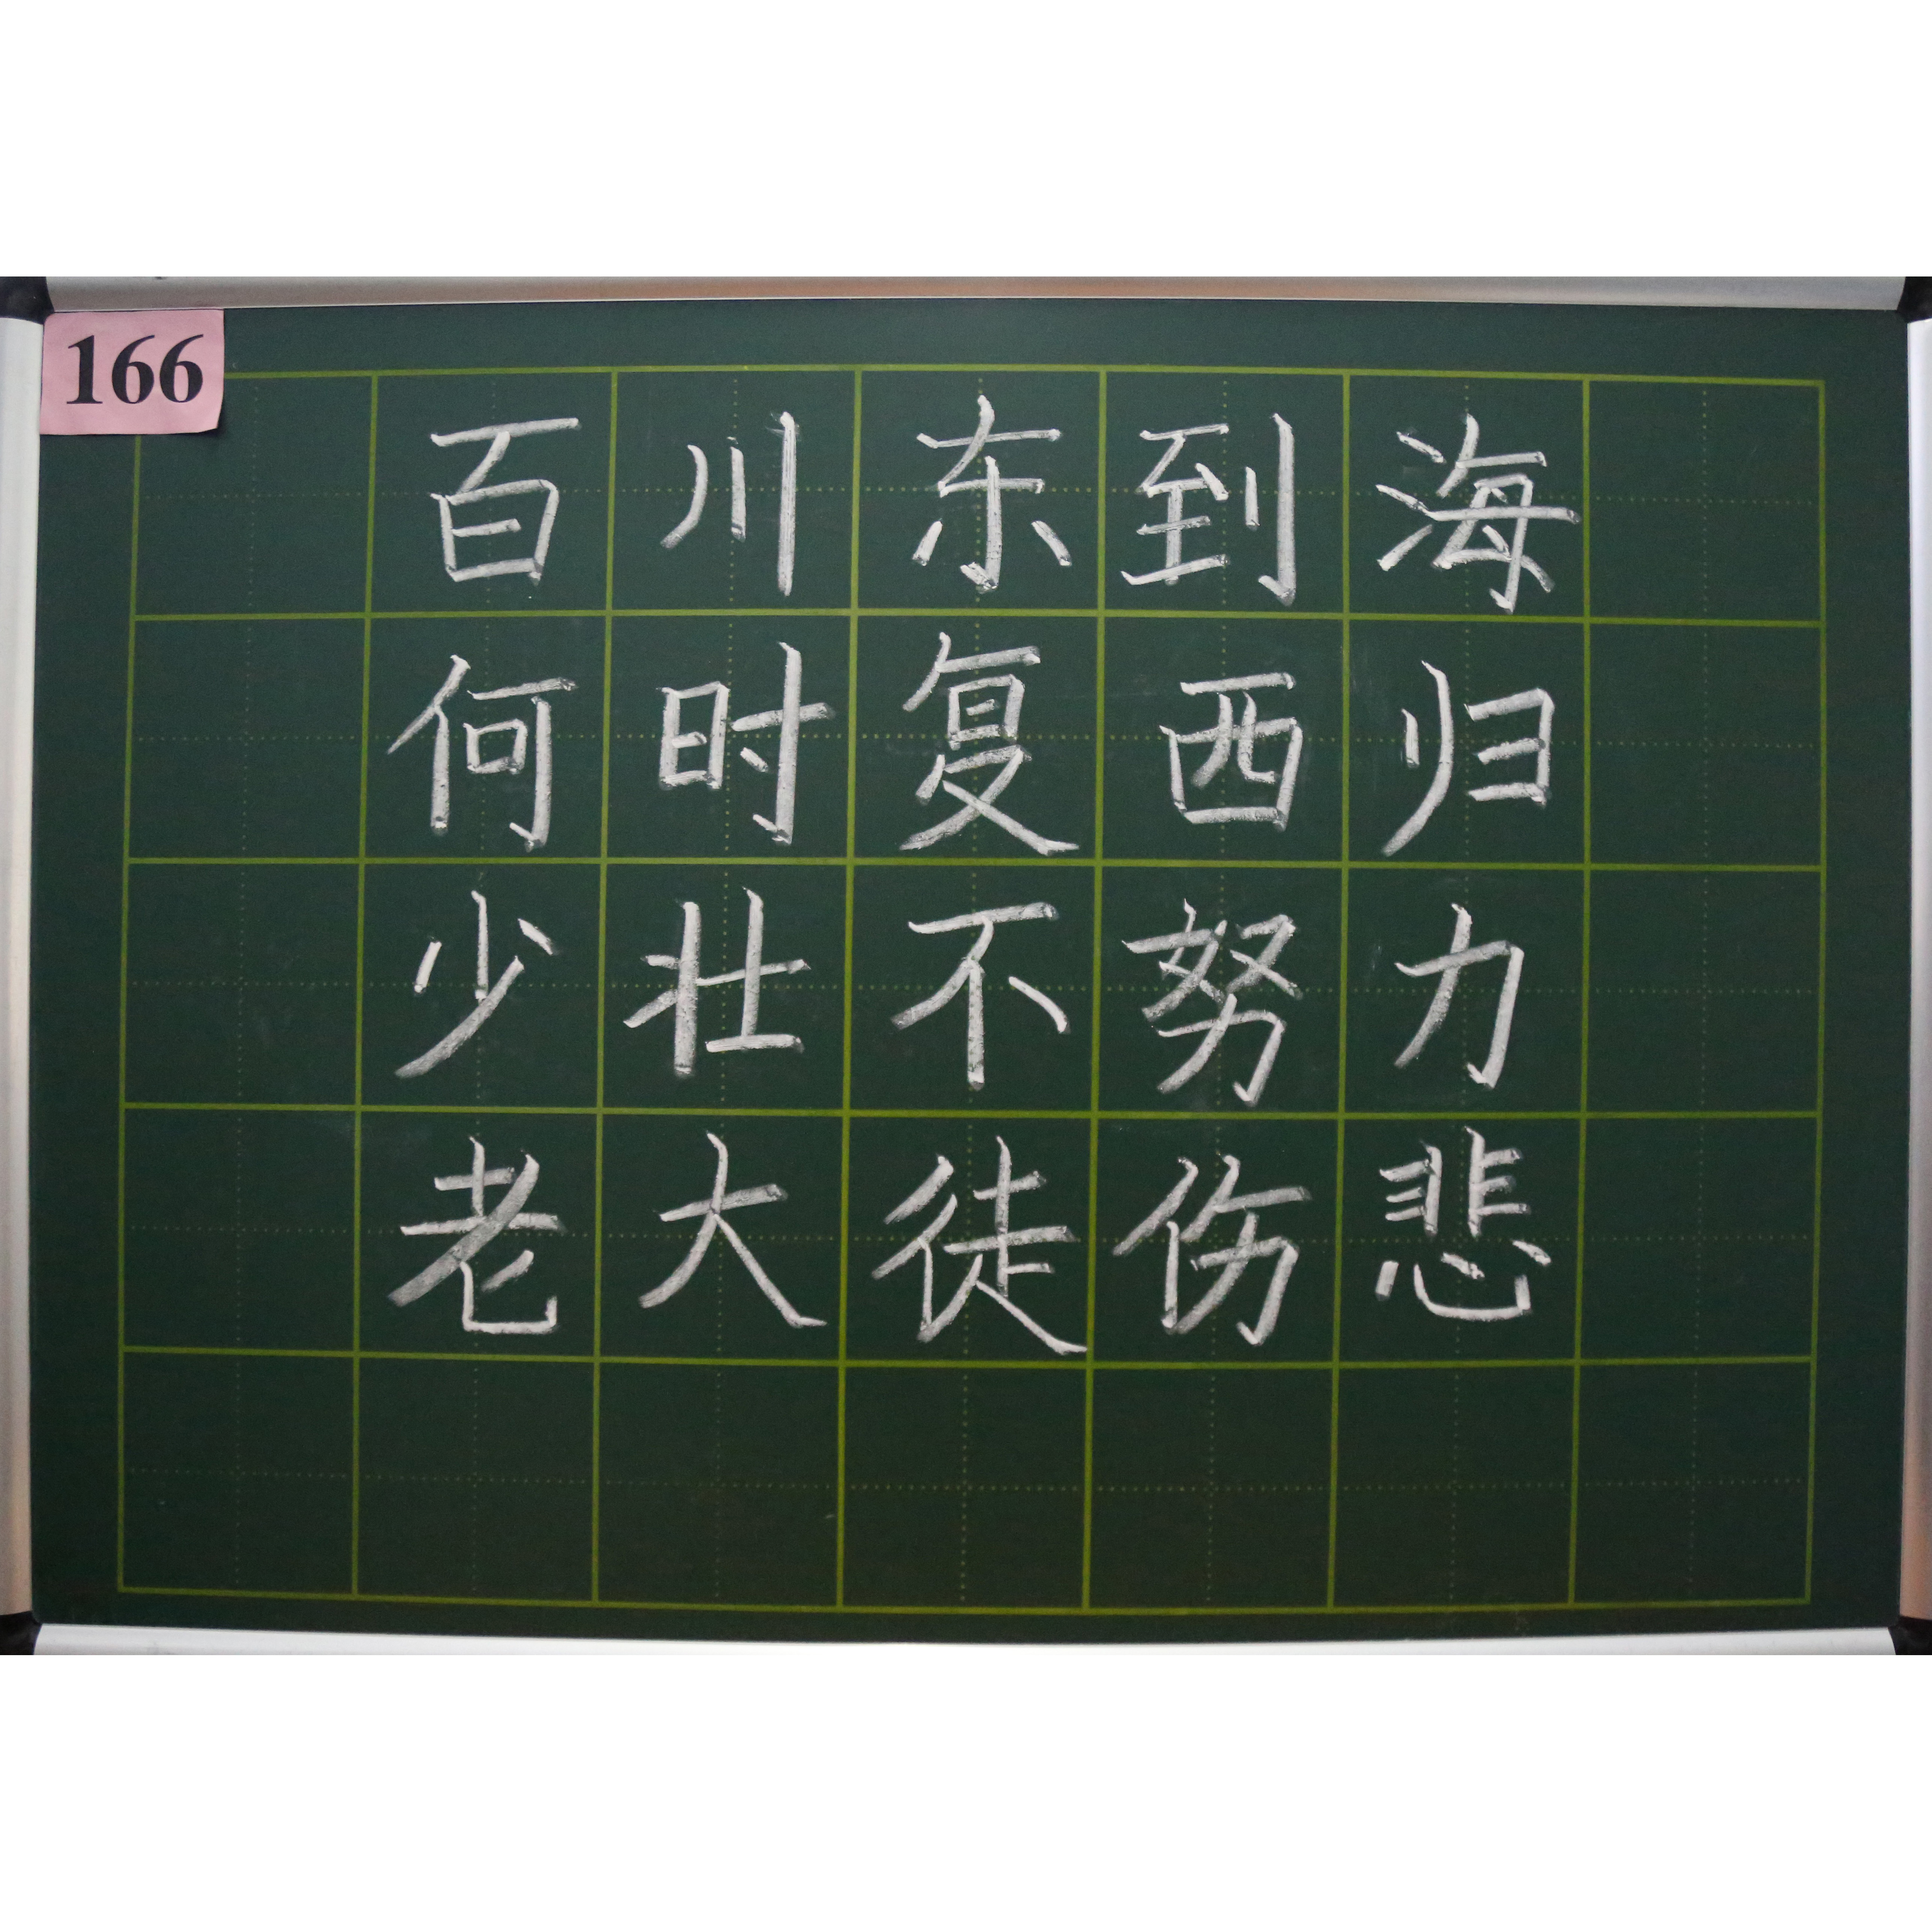 166
百川东到海
何时复西归
少壮不努力
老大徒伤悲